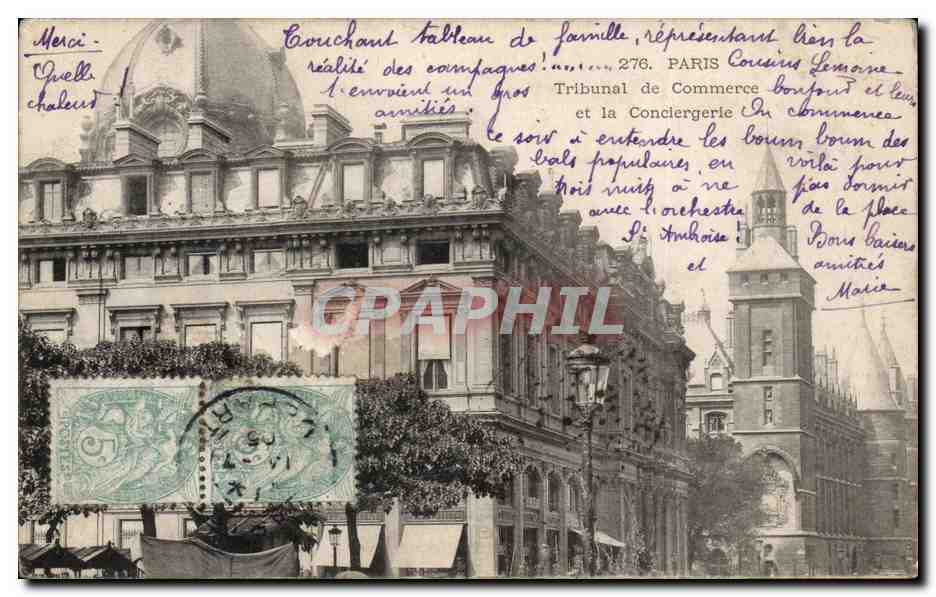 Merci.
Quelle
chaleur
Touchant tableau de famille, réprésentant bien la
réalité des campagnes!
276. PARIS
Tribunal de Commerce
et la Conciergerie
Cousins Lemoine
bonjour et leurs
t'envoient un gros
amitiés.
On commence
ce soir à entendre les boum boum des
bals populaires en voilà pour
trois nuits à ne pas dormir
avec l'orchestre de la place
St Ambroise! Bons baisers
et amitiés
Marie
CPAPHIL
5
POSTES